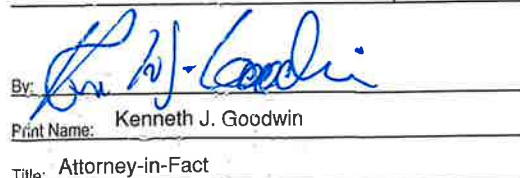 By:
Print Name: Kenneth J. Goodwin
Title: Attorney-in-Fact